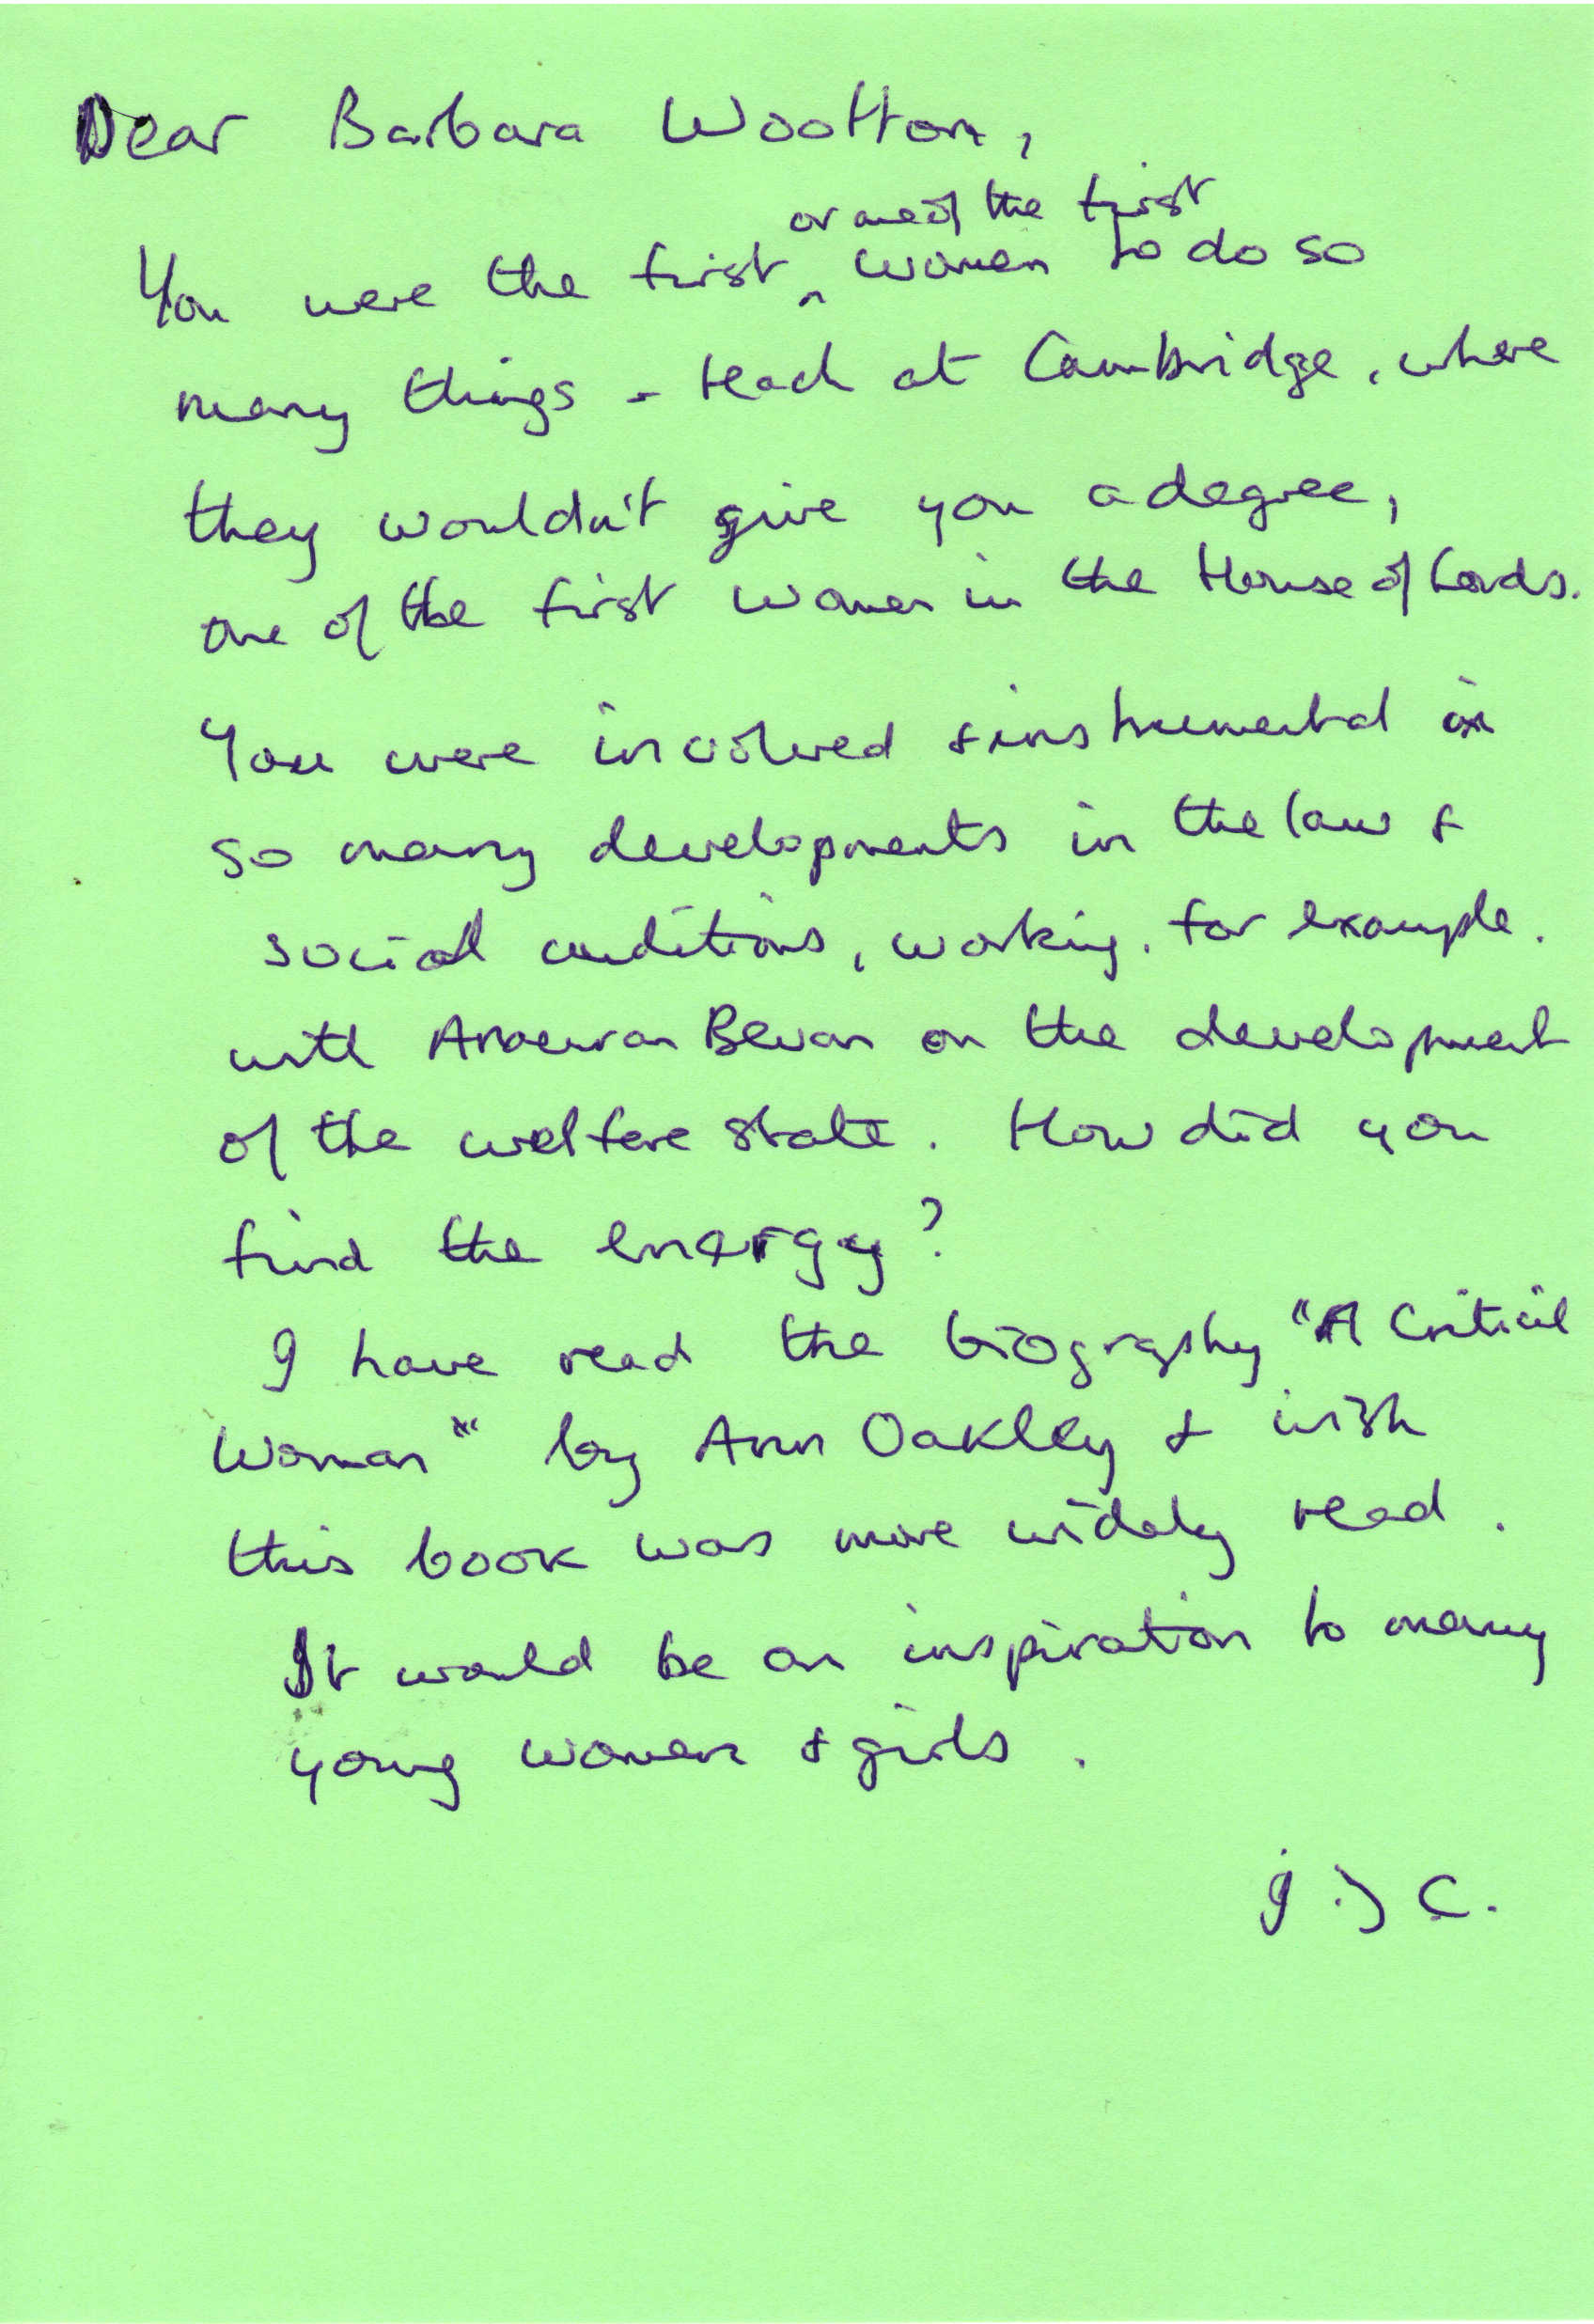 Dear Barbara Wootton,
or one of the first
You were the first ^ women to do so
many things - teach at Cambridge, where
they wouldn't give you a degree,
one of the first women in the House of Lords.
You were involved & instrumental in
so many developments in the law &
social conditions, working, for example.
with Aneuran Bevan on the development
of the welfare state. How did you
find the energy?
I have read the biography "A Critical
Woman" by Ann Oakley & wish
this book was more widely read.
It would be an inspiration to many
young women & girls.
J.J C.